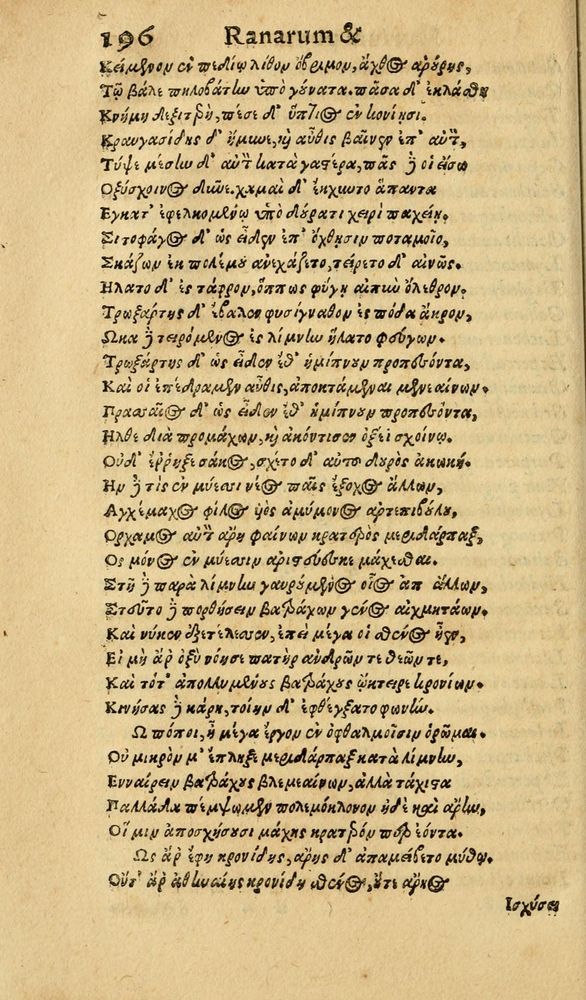 196 Ranarum &
Κείμενον ἐν πεδίῳ λίθον ὄβριμον, ἄχθος ἀρούρης,
Τῷ βάλε πηλοβάτην ὑπὸ γούνατα. πᾶσα δ' ἐκλάσθη
Κνήμη δεξιτερή, πέσε δ' ὕπτιος ἐν κονίησι.
Κραυγασίδης δ' ἤμυνε, καὶ αὖθις βαῖνεν ἐπ' αὐτόν,
Τύψε μέσην δ' αὐτὸν κατὰ γαστέρα, πᾶς δέ οἱ εἴσω
Οξύσχοινος δῦνε. χαμαὶ δ' ἔκχυντο ἅπαντα
Εγκατ' ἐφελκομένῳ ὑπὸ δούρατι χειρὶ παχείῃ.
Σιτοφάγος δ' ὡς εἶδεν ἐπ' ὄχθῃσιν ποταμοῖο,
Σκάζων ἐκ πολέμου ἀνεχάζετο, τείρετο δ' αἰνῶς.
Ηλατο δ' ἐς τάφρον, ὅππως φύγῃ αἰπὺν ὄλεθρον.
Τρωξάρτης δ' ἔβαλεν φυσίγναθον ἐς πόδα ἄκρον,
Ωκα δὲ τειρόμενος ἐς λίμνην ἥλατο φεύγων.
Τρωξάρτης δ' ὡς εἶδεν ἔθ' ἡμίπνουν προπεσόντα,
Καὶ οἱ ἐπέδραμεν αὖθις, ἀποκτάμεναι μενεαίνων.
Πρασσαῖος δ' ὡς εἶδεν ἔθ' ἡμίπνουν προπεσόντα,
Ηλθε διὰ προμάχων, καὶ ἀκόντισεν ὀξέϊ σχοίνῳ.
Οὐδ' ἔῤῥηξε σάκος, σχέτο δ' αὐτοῦ δουρὸς ἀκωκή.
Ην δέ τις ἐν μύεσσι νέος παῖς ἔξοχος ἄλλων,
Αγχέμαχος φίλος υἱὸς ἀμύμονος ἀρτεπιβούλου,
Ορχαμος αὐτὸν ἄρη φαίνων κρατερὸς μεριδάρπαξ,
Ος μόνος ἐν μύεσσιν ἀριστεύεσκε μάχεσθαι.
Στῆ δὲ παρὰ λίμνην γαυρούμενος οἶος ἀπ' ἄλλων,
Στεῦτο δὲ πορθήσειν βατράχων γένος αἰχμητάων.
Καὶ νύκεν ἐξετέλεσσεν, ἐπεὶ μέγα οἱ σθένος ἦεν,
Εἰ μὴ ἄρ' ὀξὺ νόησε πατὴρ ἀνδρῶν τε θεῶν τε,
Καὶ τότ' ἀπολλυμένους βατράχους ᾤκτειρε κρονίων.
Κινήσας δὲ κάρη, τοίην δ' ἐφθέγξατο φωνήν.
Ω πόποι, ἦ μέγα ἔργον ἐν ὀφθαλμοῖσιν ὁρῶμαι.
Οὐ μικρὸν μ' ἔπληξε μεριδάρπαξ κατὰ λίμνην,
Ενναίρειν βατράχους βλεμεαίνων, ἀλλὰ τάχιστα
Παλλάδα πέμψωμεν πολεμόκλονον ἠδὲ καὶ ἄρην,
Οἵ μιν ἀποσχήσουσι μάχης κρατερόν περ ἐόντα.
Ως ἄρ' ἔφη κρονίδης, ἄρης δ' ἀπαμείβετο μύθῳ.
Οὔτ' ἄρ' ἀθηναίης κρονίδη σθένος, οὔτε ἄρηος
Ισχύσει